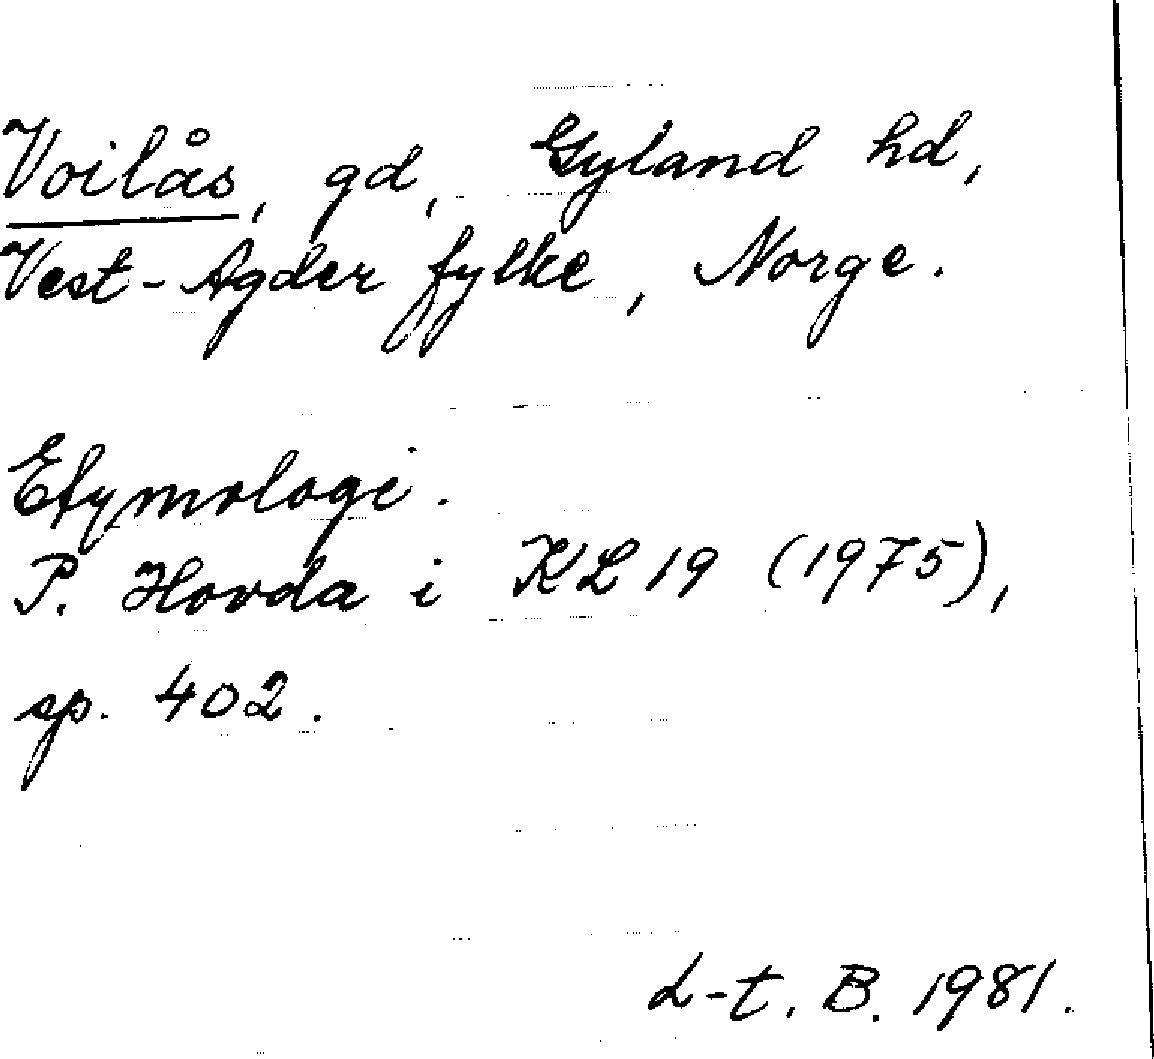 Voilås, gd, Gyland hd,
Vest-Agder fylke, Norge.
Etymologi.
P. Hovda i KL 19 (1975),
sp. 402.
L-t. B. 1981.